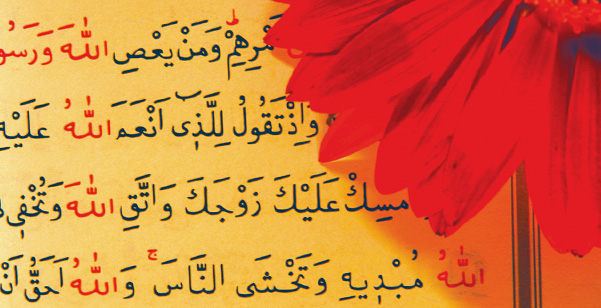 اَمْرِهِمْ وَمَنْ يَعْصِ اللّٰهَ وَرَسُو
وَاِذْ تَقُولُ لِلَّذٖٓى اَنْعَمَ اللّٰهُ عَلَيْهِ
اَمْسِكْ عَلَيْكَ زَوْجَكَ وَاتَّقِ اللّٰهَ وَتُخْفٖى
اللّٰهُ مُبْدٖيهِ وَتَخْشَى النَّاسَ ۚ وَاللّٰهُ اَحَقُّ اَنْ